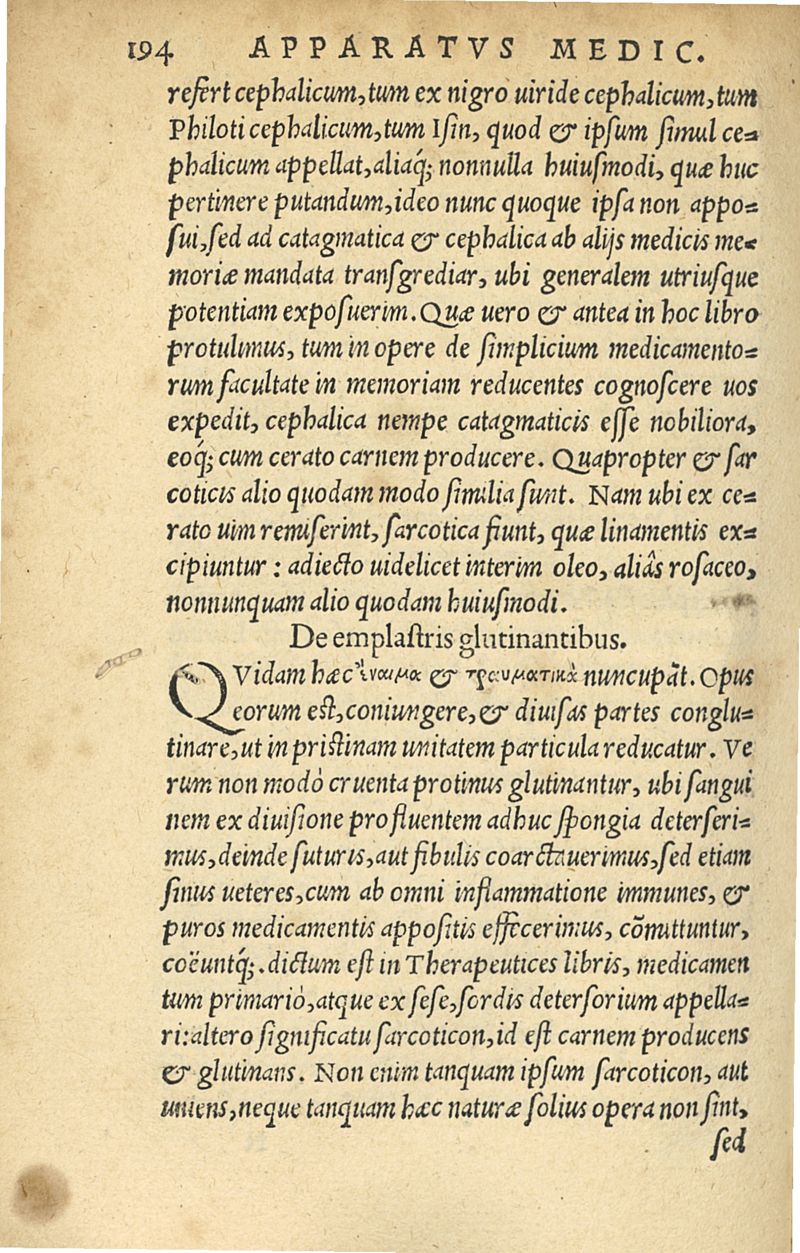 194 APPARATVS MEDIC.
refert cephalicum, tum ex nigro uiride cephalicum, tum
Philoti cephalicum, tum Isin, quod & ipsum simul ce=
phalicum appellat, aliaq́; nonnulla huiusmodi, quæ huc
pertinere putandum, ideo nunc quoque ipsa non appo=
sui, sed ad catagmatica & cephalica ab alijs medicis me=
moriæ mandata transgrediar, ubi generalem utriusque
potentiam exposuerim. Quæ uero & antea in hoc libro
protulimus, tum in opere de simplicium medicamento=
rum facultate in memoriam reducentes cognoscere uos
expedit, cephalica nempe catagmaticis esse nobiliora,
eoq́; cum cerato carnem producere. Quapropter & sar
coticis alio quodam modo similia sunt. Nam ubi ex ce=
rato uim remiserint, sarcotica fiunt, quæ linamentis ex=
cipiuntur : adiecto uidelicet interim oleo, aliâs rosaceo,
nonnunquam alio quodam huiusmodi.
De emplastris glutinantibus.
QVidam hæc ἔναιμα & τραυματικὰ nuncupāt. Opus
eorum est, coniungere, & diuisas partes conglu=
tinare, ut in pristinam unitatem particula reducatur. Ve
rum non modò cruenta protinus glutinantur, ubi sangui
nem ex diuisione profluentem adhuc spongia deterseri=
mus, deinde suturis, aut fibulis coarctauerimus, sed etiam
sinus ueteres, cum ab omni inflammatione immunes, &
puros medicamentis appositis effecerimus, cōmittuntur,
coëuntq́;. dictum est in Therapeutices libris, medicamen
tum primariò, atque ex sese, sordis detersorium appella=
ri: altero significatu sarcoticon, id est carnem producens
& glutinans. Non enim tanquam ipsum sarcoticon, aut
uniens, neque tanquam hæc naturæ solius opera non sint,
sed